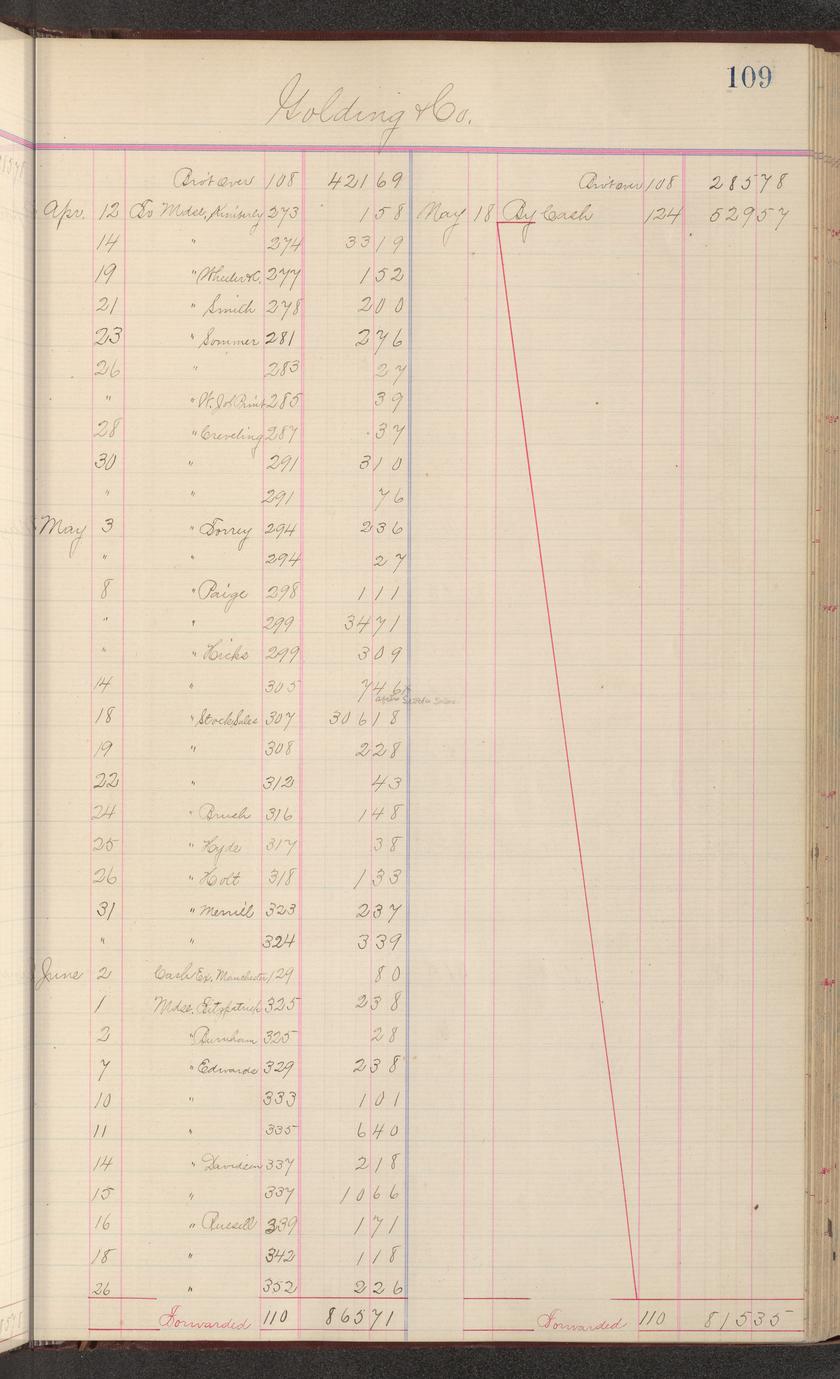 109
Golding & Co.
Bro't over 108 421 69
Apr. 12 To Mdse. Kimberly 273 1 58
14 " 274 33 19
19 " Wheeler & C. 277 1 52
21 " Smith 278 2 00
23 " Sommer 281 2 76
26 " 283 27
" " W. Job Print 285 39
28 " Creveling 287 37
30 " 291 3 10
" " 291 76
May 3 " Torrey 294 2 36
" " 294 27
8 " Paige 298 1 11
" " 299 34 71
" " Hicks 299 3 09
14 " 305 7 46
18 " Stock Sales 307 306 18
19 " 308 2 28
22 " 312 43
24 " Bruch 316 1 48
25 " Hyde 317 38
26 " Holt 318 1 33
31 " Merrill 323 2 37
" " 324 3 39
June 2 Cash Ex. Manchester 129 80
1 Mdse. Fitzpatrick 325 2 38
2 " Burnham 325 28
7 " Edwards 329 2 38
10 " 333 1 01
11 " 335 6 40
14 " Davidson 337 2 18
15 " 337 10 66
16 " Russell 339 1 71
18 " 342 1 18
26 " 352 2 26
Forwarded 110 865 71
Bro't over 108 285 78
May 18 By Cash 124 529 57
Forwarded 110 815 35